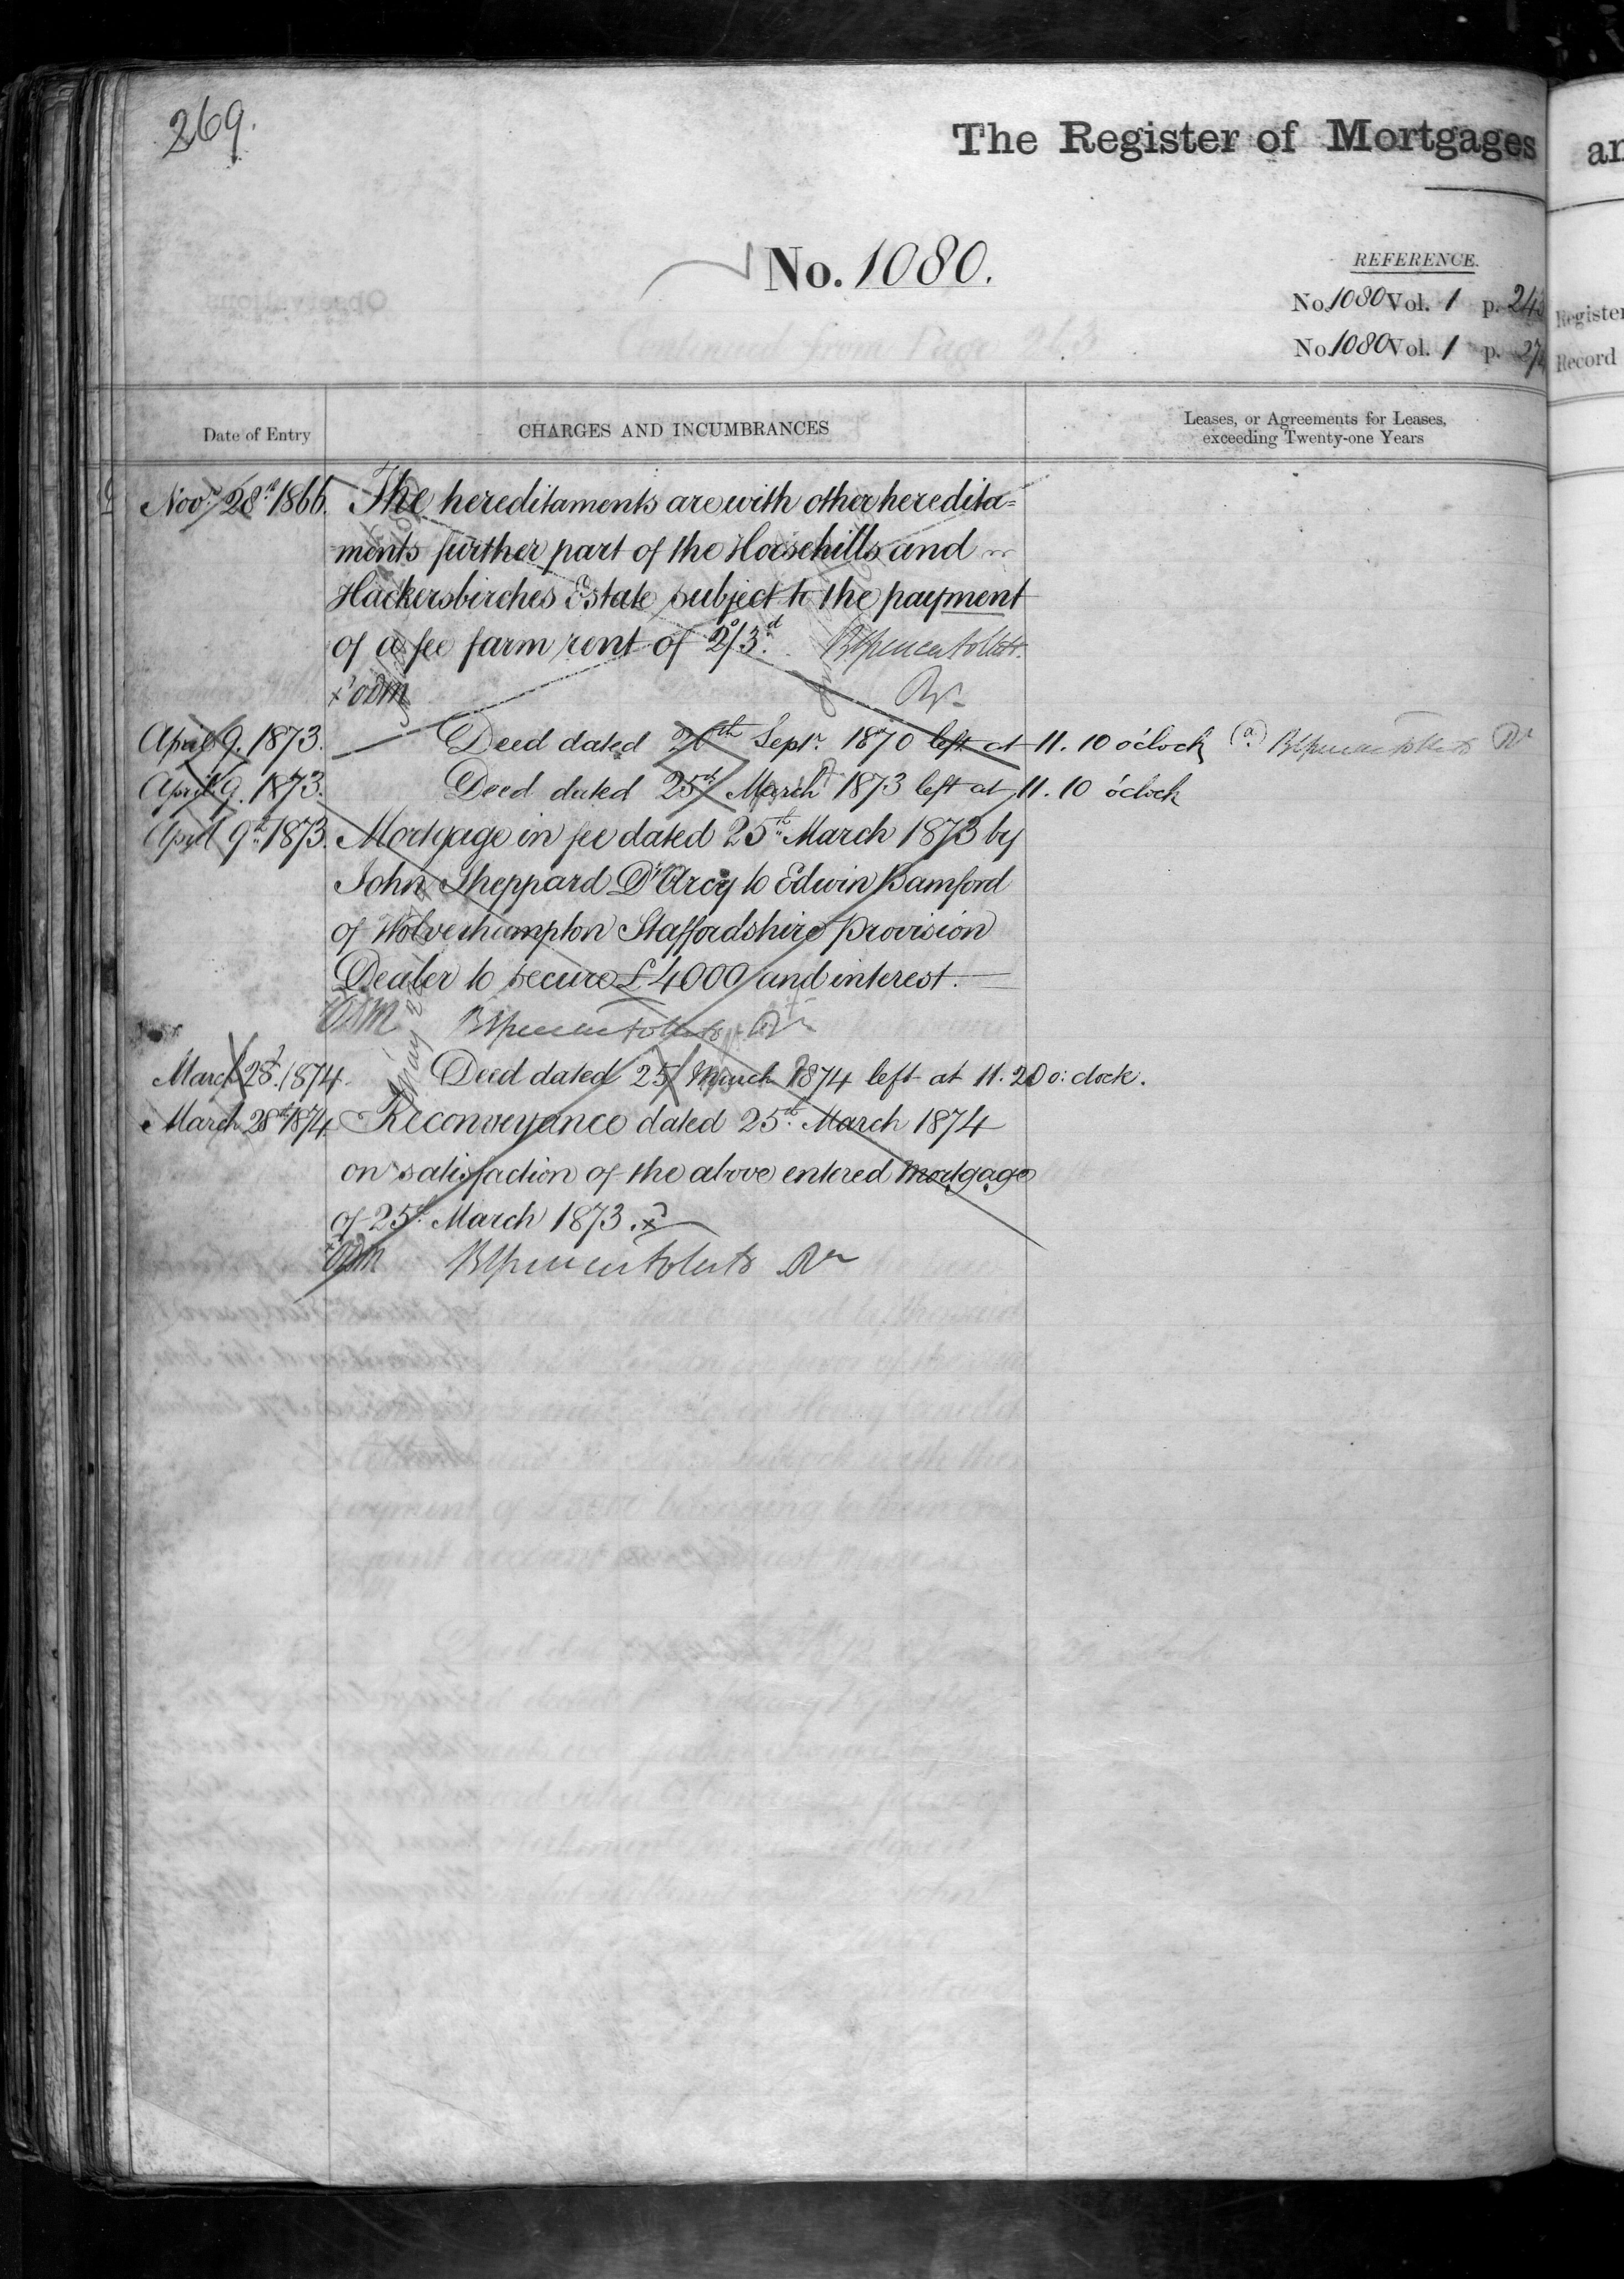 269.
The Register of Mortgages
No. 1080.
REFERENCE.
No. 1080 Vol. 1 p. 243
No. 1080 Vol. 1 p. 274
Register
Record
Continued from Page 263
Date of Entry
CHARGES AND INCUMBRANCES
Leases, or Agreements for Leases,
exceeding Twenty-one Years
Novr 28th 1866. The hereditaments are with other heredita=
ments further part of the Horsehills and
Hackersbirches Estate subject to the payment
of a fee farm rent of 2s/3d.
Rr
April 9. 1873. Deed dated 20th Septr. 1870 left at 11.10 o'clock (a)
April 9. 1873. Deed dated 25th March 1873 left at 11.10 o'clock
April 9th 1873. Mortgage in fee dated 25th March 1873 by
John Sheppard D'Arcy to Edwin Bamford
of Wolverhampton Staffordshire Provision
Dealer to secure £4000 and interest.
March 28. 1874. Deed dated 25 March 1874 left at 11.20 o'clock.
March 28th 1874. Reconveyance dated 25th March 1874
on satisfaction of the above entered mortgage
of 25th March 1873.